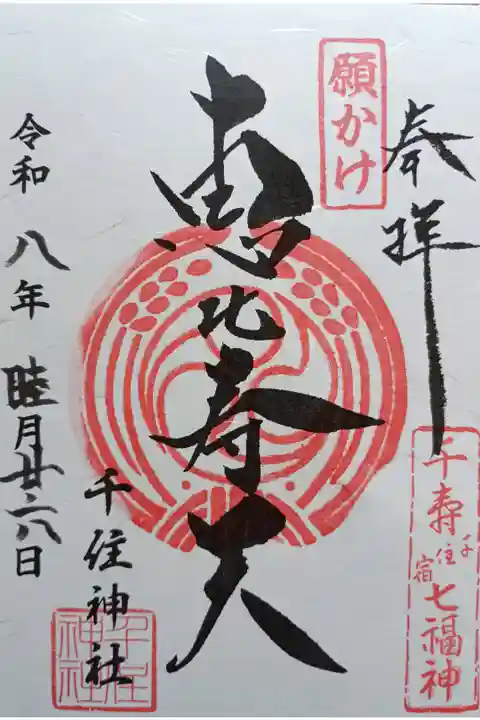 奉拝
願かけ
千寿七福神
千住宿
恵比寿天
千住神社
千住神社
令和八年睦月廿六日